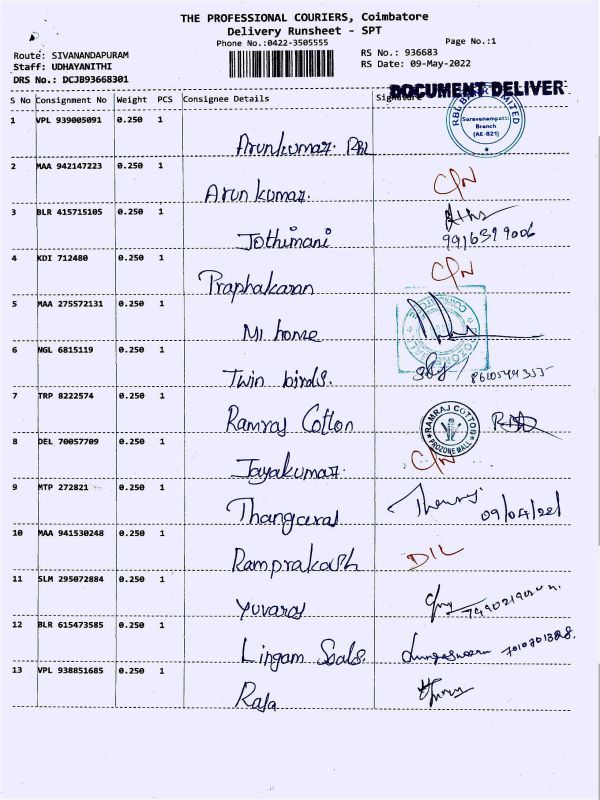 THE PROFESSIONAL COURIERS, Coimbatore
Delivery Runsheet - SPT
Phone No.:0422-3505555
Page No.:1
Route: SIVANANDAPURAM
Staff: UDHAYANITHI
DRS No.: DCJB93668301
RS No.: 936683
RS Date: 09-May-2022
DOCUMENT DELIVER
S No Consignment No Weight PCS Consignee Details Signature
RBL BANK LIMITED
Saravanampatti
Branch
(AE-821)
1 VPL 939005091 0.250 1
Arunkumar. RBL
2 MAA 942147223 0.250 1
Arunkumar. C/N
3 BLR 415715105 0.250 1
Jothimani
9916399006
4 KDI 712480 0.250 1
Praphakaran C/N
5 MAA 275572131 0.250 1
MI home
6 NGL 6815119 0.250 1
Twin birds.
7 TRP 8222574 0.250 1
Ramraj Cotton
RAMRAJ COTTON
PROZONE MALL
8 DEL 70057709 0.250 1
Jayakumar. C/N
9 MTP 272821 0.250 1
Thangaraj 09/04/22
10 MAA 941530248 0.250 1
Ramprakash D/L
11 SLM 295072884 0.250 1
Yuvaraj
12 BLR 615473585 0.250 1
Lingam Seals.
13 VPL 938851685 0.250 1
Raja